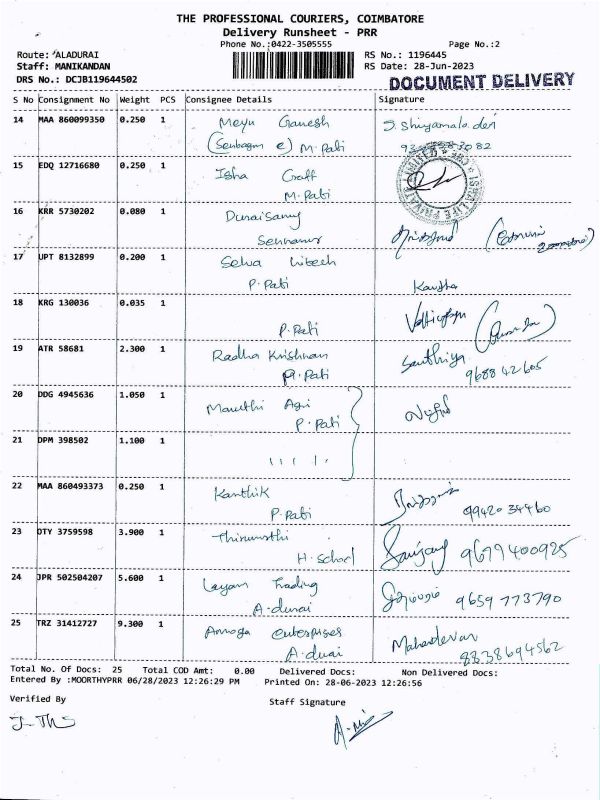 THE PROFESSIONAL COURIERS, COIMBATORE
Delivery Runsheet - PRR
Phone No.:0422-3505555
Page No.:2
Route: ALADURAI
RS No.: 1196445
Staff: MANIKANDAN
RS Date: 28-Jun-2023
DRS No.: DCJB119644502
DOCUMENT DELIVERY
S No Consignment No Weight PCS Consignee Details Signature
14 MAA 860099350 0.250 1 Meyu Ganesh S. Shiyamala devi
M. Pati
15 EDQ 12716680 0.250 1 Isha Craft
M. Pati
16 KRR 5730202 0.080 1 Duraisamy
Sennanur
17 UPT 8132899 0.200 1 Selva
P. Pati
18 KRG 130036 0.035 1
P. Pati
19 ATR 58681 2.300 1 Radha Krishnan Santhiya
Pati 9688 42605
20 DDG 4945636 1.050 1 Maruthi Agri
P. Pati
21 DPM 398502 1.100 1
22 MAA 860493373 0.250 1 Karthik
P. Pati 99420 34460
23 DTY 3759598 3.900 1 Thirumurthi Sanjay 9677400925
H. School
24 JPR 502504207 5.600 1 Layam Trading 9659 773790
A. durai
25 TRZ 31412727 9.300 1 Amoga Enterprises Mahadevan
A. durai 8838694562
Total No. Of Docs: 25 Total COD Amt: 0.00 Delivered Docs: Non Delivered Docs:
Entered By :MOORTHYPRR 06/28/2023 12:26:29 PM Printed On: 28-06-2023 12:26:56
Verified By
Staff Signature